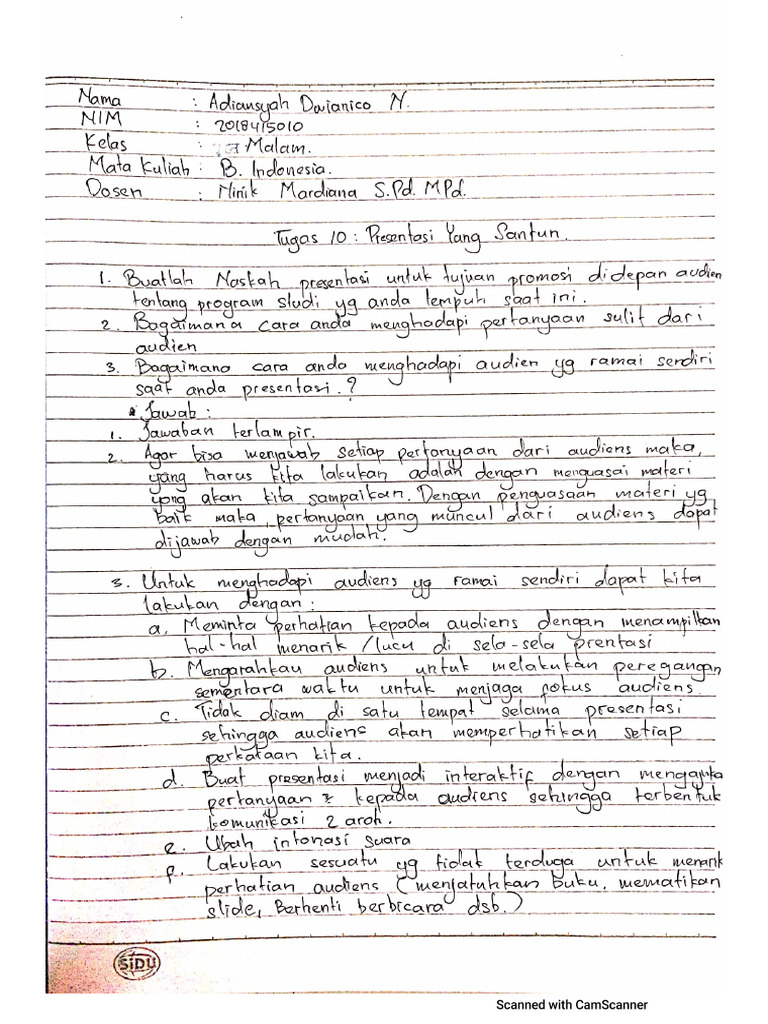 Nama : Adiansyah Dwianico N.
NIM : 2018415010
Kelas : Malam.
Mata Kuliah : B. Indonesia.
Dosen : Ninik Mardiana S.Pd. MPd.
Tugas 10 : Presentasi Yang Santun.
1. Buatlah Naskah presentasi untuk tujuan promosi didepan audien
tentang program studi yg anda tempuh saat ini.
2. Bagaimana cara anda menghadapi pertanyaan sulit dari
audien
3. Bagaimana cara anda menghadapi audien yg ramai sendiri
saat anda presentasi.?
• Jawab :
1. Jawaban terlampir.
2. Agar bisa menjawab setiap pertanyaan dari audiens maka,
yang harus kita lakukan adalah dengan menguasai materi
yang akan kita sampaikan. Dengan penguasaan materi yg
baik maka, pertanyaan yang muncul dari audiens dapat
dijawab dengan mudah.
3. Untuk menghadapi audiens yg ramai sendiri dapat kita
lakukan dengan :
a. Meminta perhatian kepada audiens dengan menampilkan
hal-hal menarik /lucu di sela-sela prentasi
b. Mengarahkau audiens untuk melakukan peregangan
sementara waktu untuk menjaga fokus audiens.
c. Tidak diam di satu tempat selama presentasi
sehingga audiens akan memperhatikan setiap
perkataan kita.
d. Buat presentasi menjadi interaktif dengan mengajuka
pertanyaan 2 kepada audiens sehingga terbentuk
komunikasi 2 arah.
e. Ubah intonasi suara
f. Lakukan sesuatu yg tidak terduga untuk menarik
perhatian audiens (menjatuhkan buku, mematikan
slide, Berhenti berbicara dsb.)
SiDU
Scanned with CamScanner